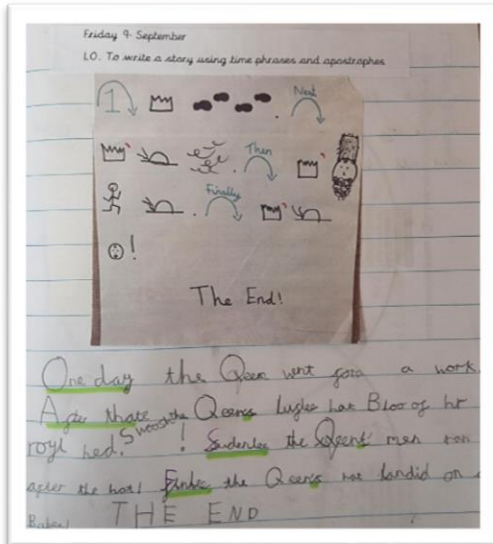 Friday 9 September
LO. To write a story using time phrases and apostrophes
1 Next
Then
Finally
!
The End!
One day the Qeen went fora a work
After thate the Qeen's lugles hat Bloo of hr
royl hed. Swoosh! Sudenlee the Qeens' men ran
after the hat! Finlee the Qeen's hat landid on a
THE END